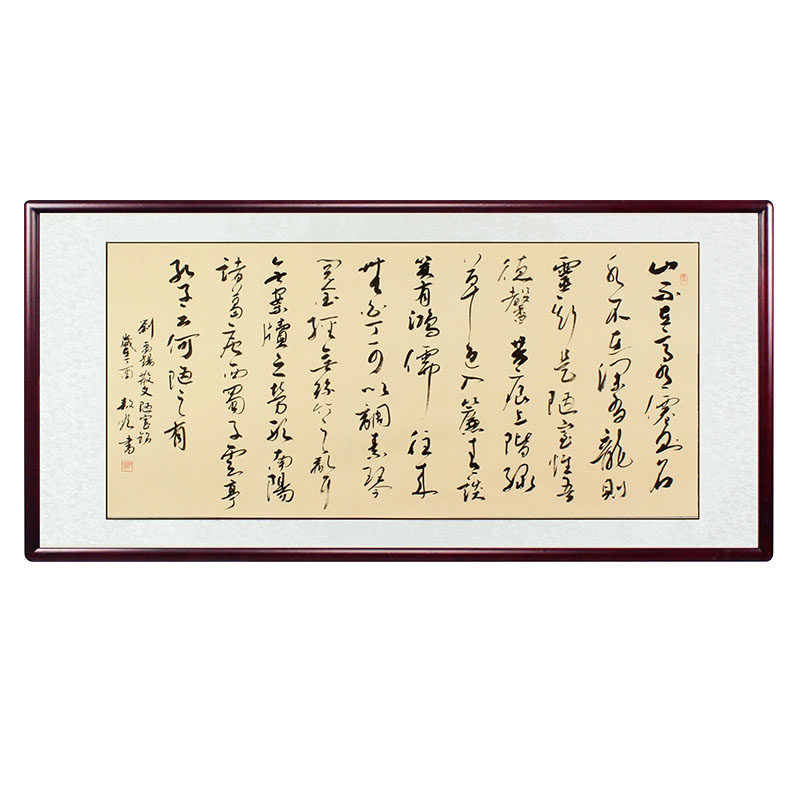 山不在高有僊則名
水不在深有龍則
靈斯是陋室惟吾
德馨苔痕上階綠
草色入簾青談
笑有鴻儒往來
無白丁可以調素琴
閱金經無絲竹之亂耳
無案牘之勞形南陽
諸葛廬西蜀子雲亭
孔子云何陋之有
劉禹錫散文陋室銘
歲丁酉 書